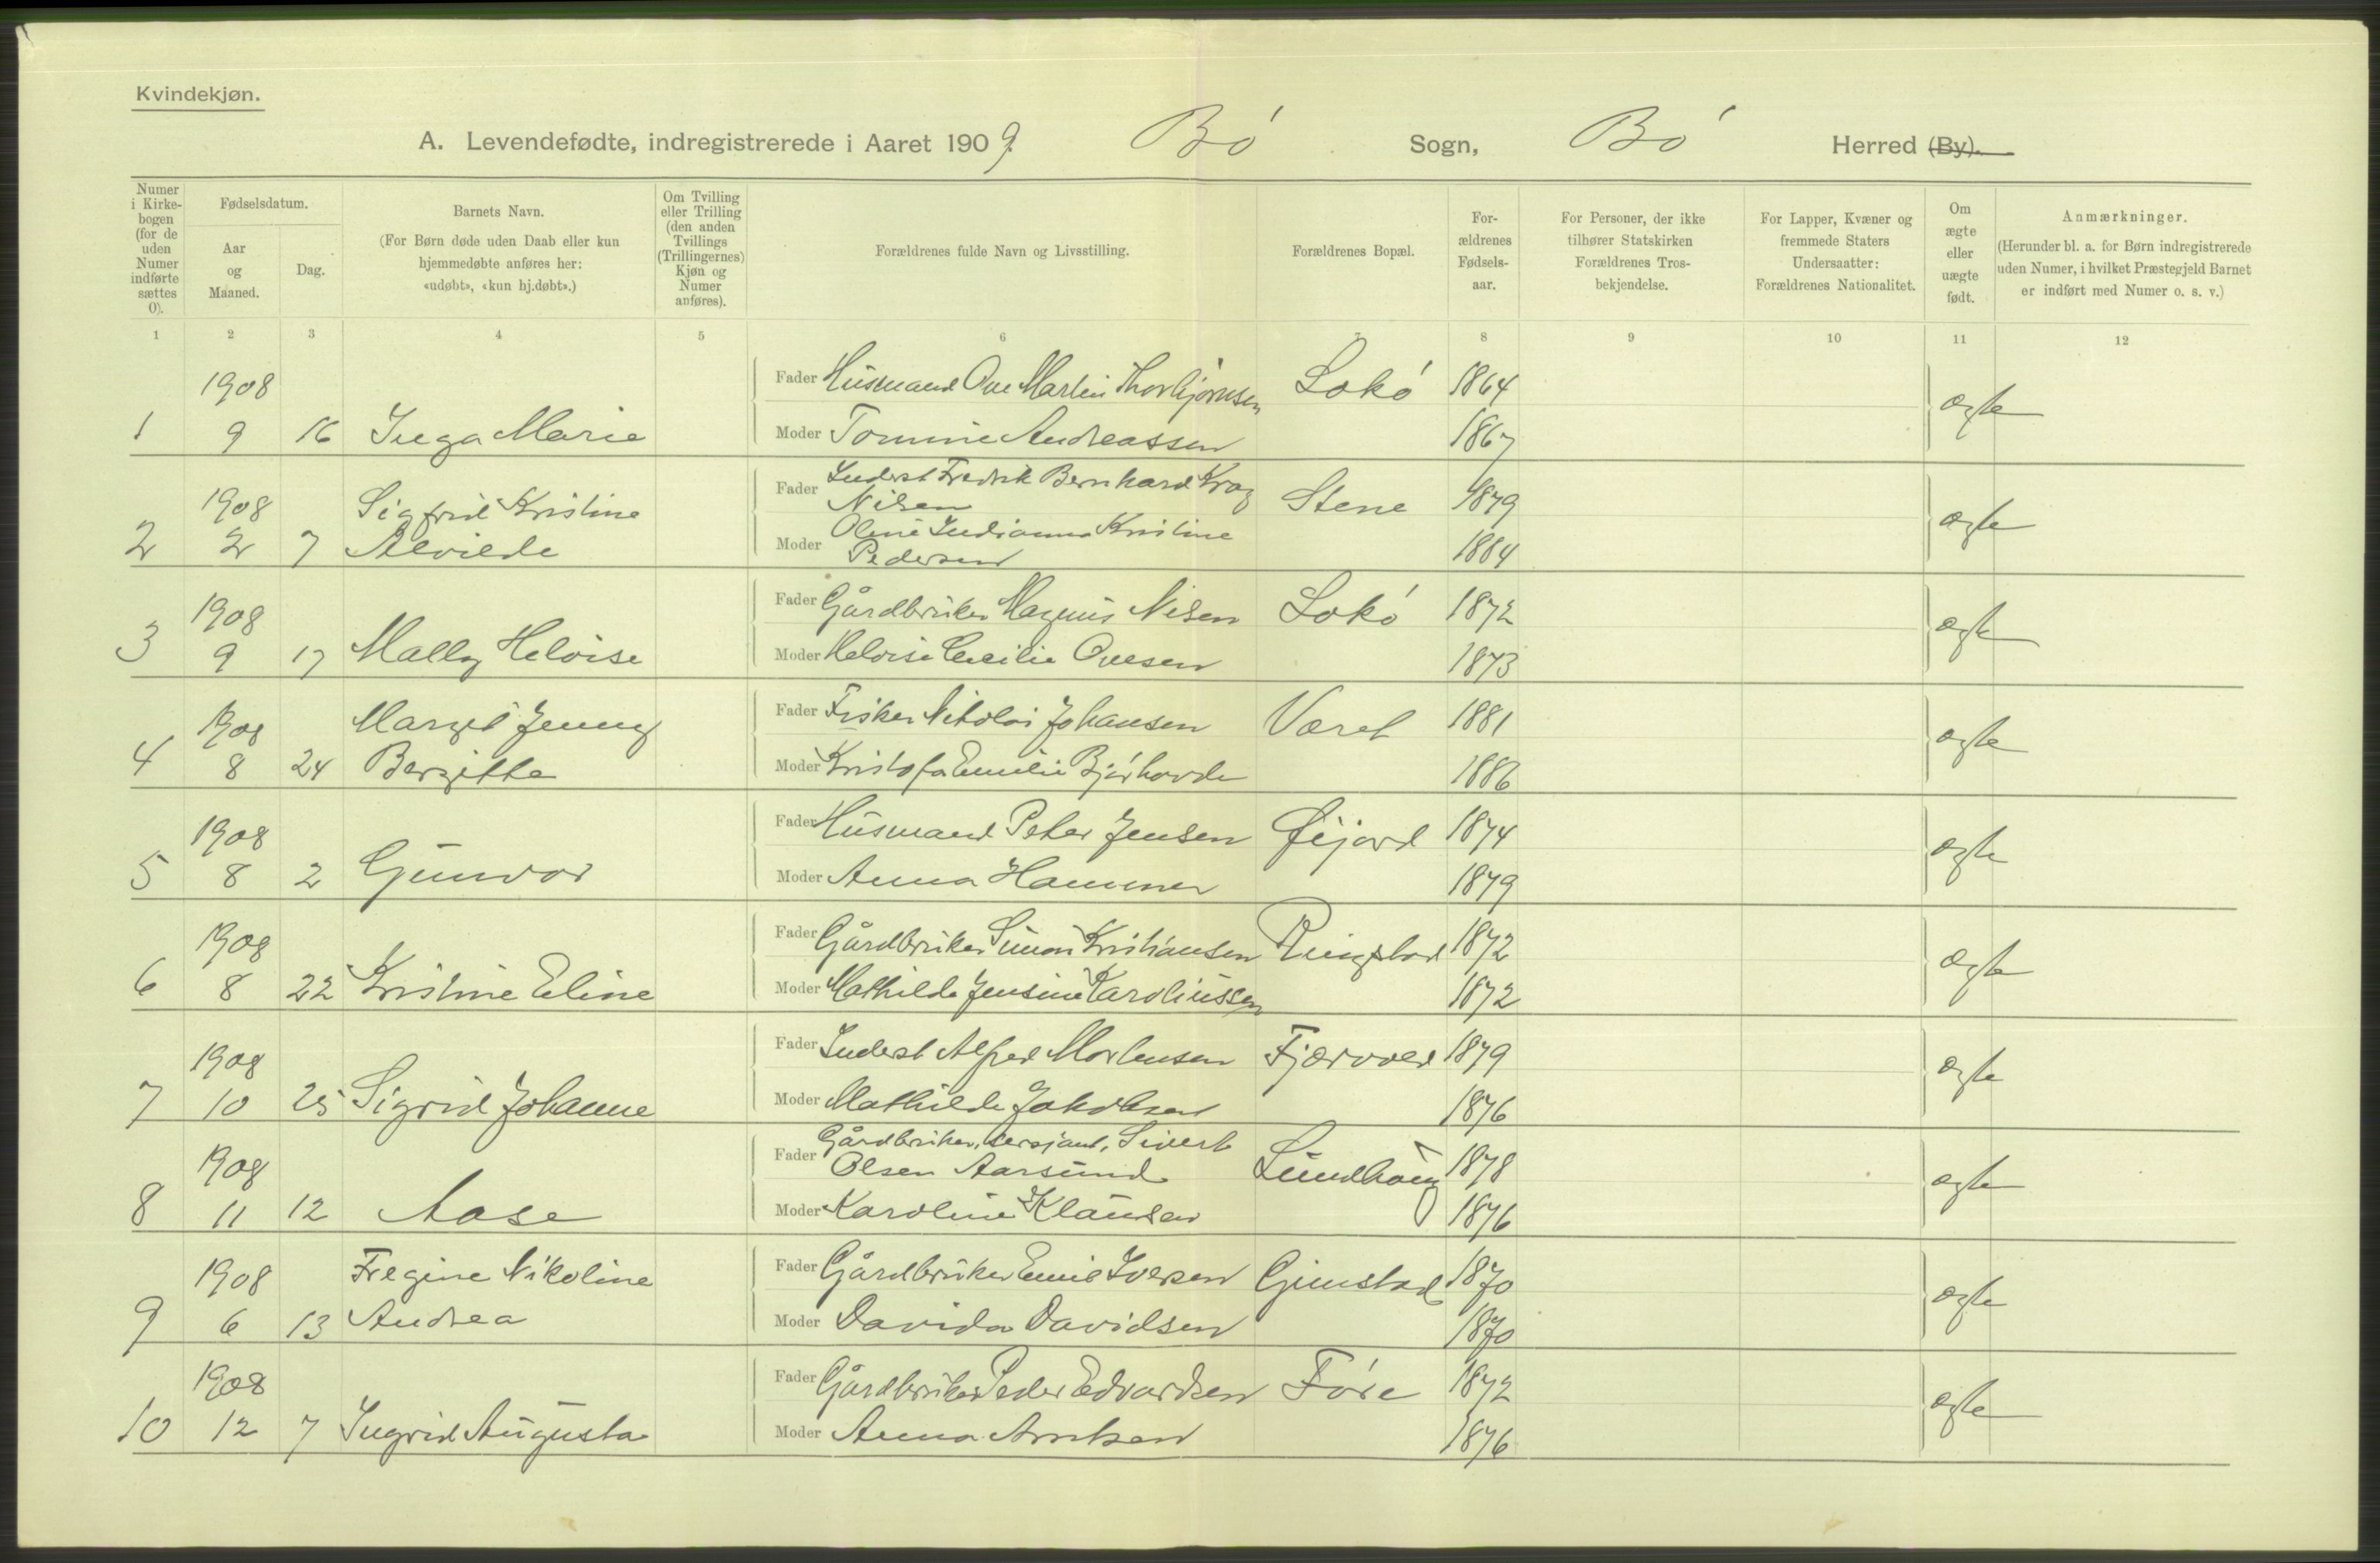 Kvindekjøn.
A. Levendefødte, indregistrerede i Aaret 1909. Bö Sogn, Bö Herred (By).
Numer i Kirkebogen (for de uden Numer indførte sættes 0).
Fødselsdatum.
Aar og Maaned.
Dag.
Barnets Navn.
(For Børn døde uden Daab eller kun hjemmedøbte anføres her: «udøbt», «kun hj.døbt».)
Om Tvilling eller Trilling (den anden Tvillings (Trillingernes) Kjøn og Numer anføres).
Forældrenes fulde Navn og Livsstilling.
Forældrenes Bopæl.
Forældrenes Fødselsaar.
For Personer, der ikke tilhører Statskirken Forældrenes Trosbekjendelse.
For Lapper, Kvæner og fremmede Staters Undersaatter: Forældrenes Nationalitet.
Om ægte eller uægte født.
Anmærkninger.
(Herunder bl. a. for Børn indregistrerede uden Numer, i hvilket Præstegjeld Barnet er indført med Numer o. s. v.)
1 2 3 4 5 6 7 8 9 10 11 12
1908 Fader Husmand Ove Martin Thorbjörnsen Lokö 1864 ægte
1 9 16 Inga Marie Moder Tomine Andreassen 1867
1908 Sigfrid Kristine Fader Inderst Fredrik Bernhard Krog Nilsen Stene 1879 ægte
2 2 7 Alvilde Moder Oline Indianna Kristine Pedersen 1884
1908 Fader Gårdbruker Magnus Nilsen Lokö 1872 ægte
3 9 17 Mally Heloise Moder Heloise Cecilie Ovesen 1873
1908 Margit Jenny Fader Fisker Nikolai Johansen Været 1881 ægte
4 8 24 Bergitte Moder Kristofa Emilie Björhovde 1886
1908 Fader Husmand Peter Jensen Øijord 1874 ægte
5 8 2 Gunvor Moder Anna Hammer 1879
1908 Fader Gårdbruker Simon Kristiansen Ringstad 1872 ægte
6 8 22 Kristine Eline Moder Mathilde Jensine Karoliussen 1872
1908 Fader Inderst Alfred Mortensen Fjærvoll 1879 ægte
7 10 25 Sigrid Johanne Moder Mathilde Jakobsen 1876
1908 Fader Gårdbruker, sersjant, Sivert Olsen Aarsund Lundhöug 1878 ægte
8 11 12 Aase Moder Karoline Klausen 1876
1908 Fregine Nikoline Fader Gårdbruker Emil Iversen Gimstad 1870 ægte
9 6 13 Andrea Moder Davida Davidsen 1870
1908 Fader Gårdbruker Peder Edvardsen Före 1872 ægte
10 12 7 Ingrid Augusta Moder Anna Arntsen 1876